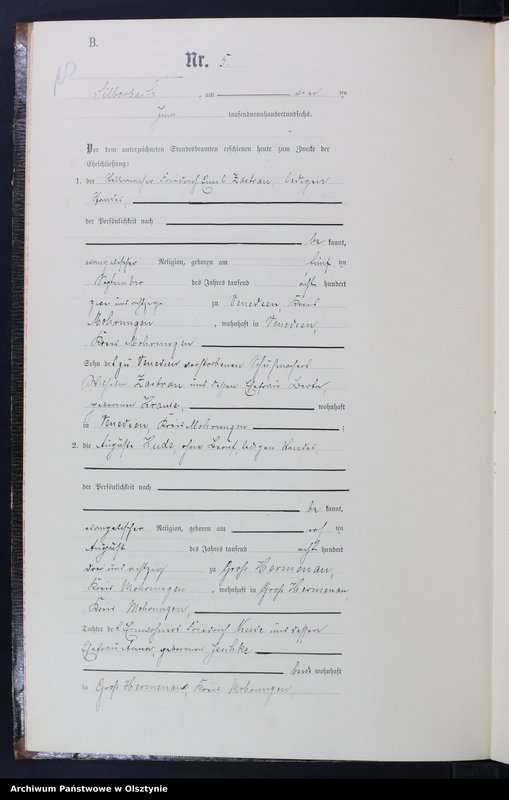 B.
Nr. 5.
Silberbach, am vier ten
Juni tausendneunhundertundsechs.
Vor dem unterzeichneten Standesbeamten erschienen heute zum Zwecke der
Eheschließung:
1. der Stellmacher Friedrich Emil Zastrau, ledigen
Standes
der Persönlichkeit nach
be kannt,
evangelischer Religion, geboren am fünf ten
September des Jahres tausend acht hundert
zwei und achtzig zu Venedien, Kreis
Mohrungen, wohnhaft in Venedien,
Kreis Mohrungen
Sohn des zu Venedien verstorbenen Schuhmachers
Wilhelm Zastrau und dessen Ehefrau Berta,
geborenen Krause, wohnhaft
in Venedien, Kreis Mohrungen;
2. die Auguste Kude, ohne Beruf, ledigen Standes
der Persönlichkeit nach
be kannt,
evangelischer Religion, geboren am ten
August des Jahres tausend acht hundert
drei und achtzig zu Groß Hermenau,
Kreis Mohrungen, wohnhaft in Groß Hermenau,
Kreis Mohrungen,
Tochter des Einwohners Friedrich Kude und dessen
Ehefrau Anna, geborenen Jeschke
beide wohnhaft
in Groß Hermenau, Kreis Mohrungen,
Archiwum Państwowe w Olsztynie